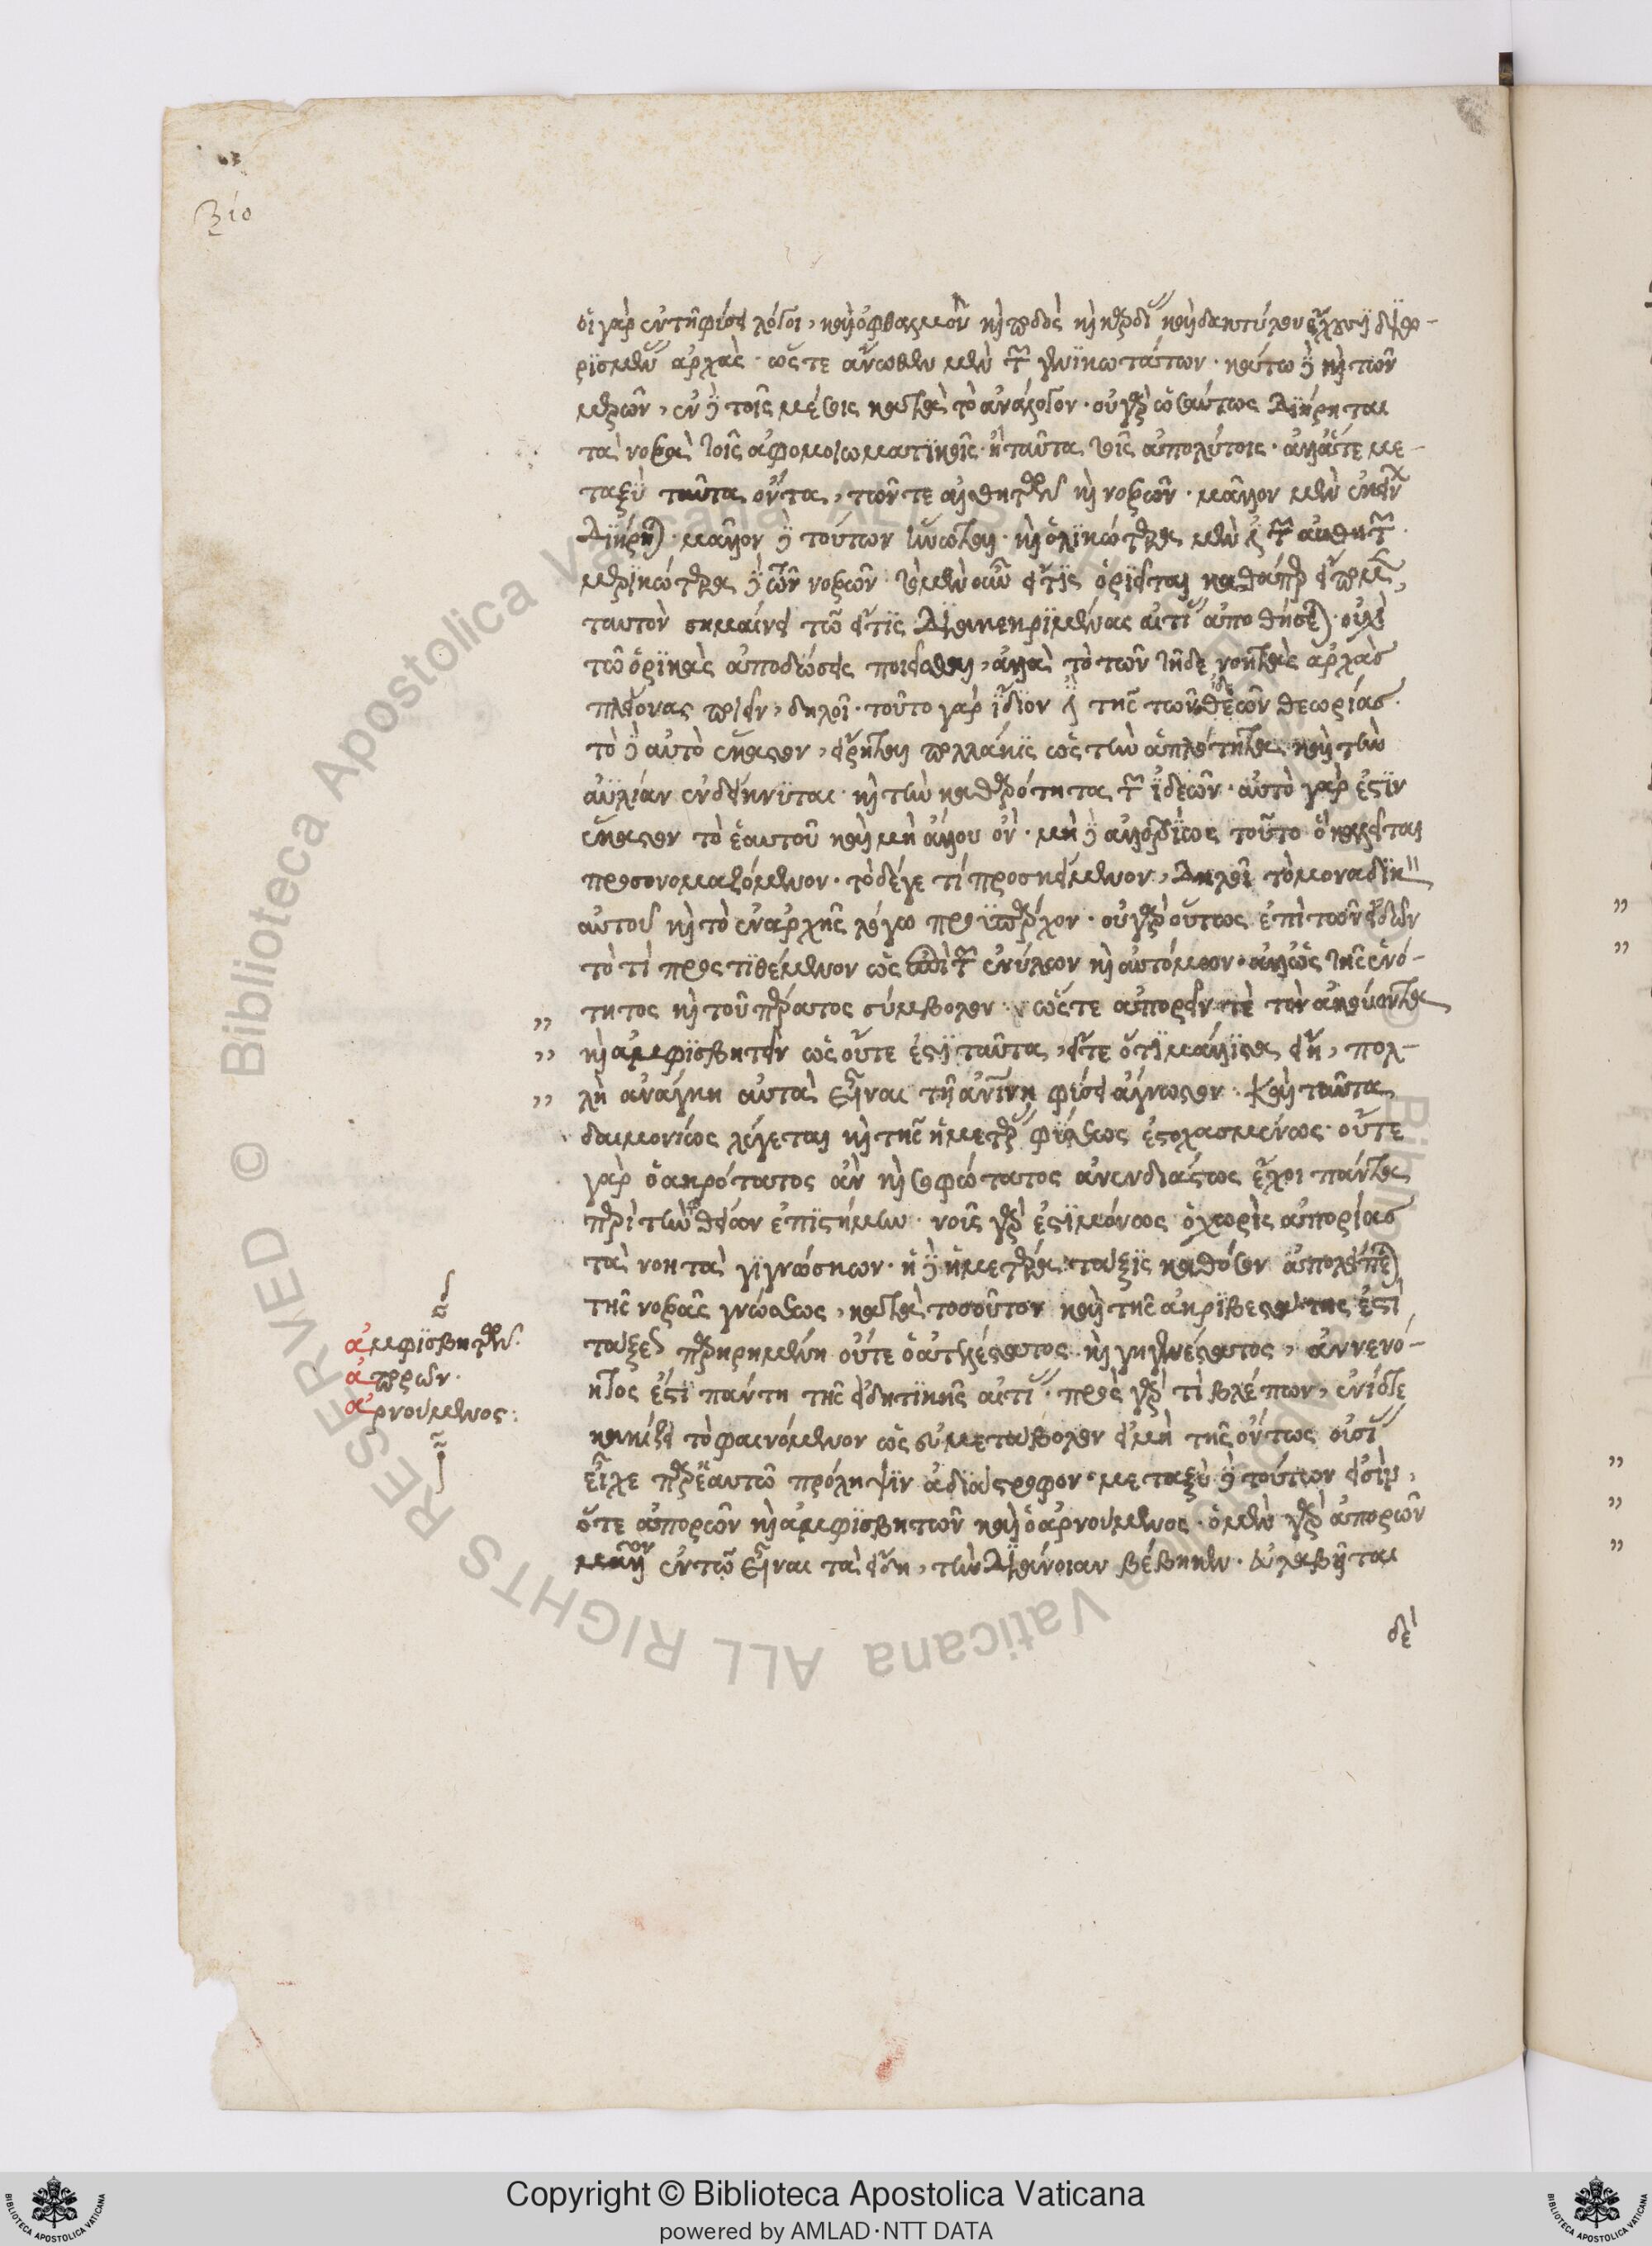 οἱ γὰρ ἐν τῇ φύσει λόγοι, καὶ ὀφθαλμοῦ καὶ ποδὸς καὶ καρδίας καὶ δακτύλου ἔχουσι διῃρη-
ρισμένας ἀρχὰς. ὥστε ἄνωθεν μὲν τῶν γενικωτάτων. κάτω δὲ καὶ τῶν
μερῶν, ἐν δὲ τοῖς μέσοις κατὰ τὸ ἀνάλογον. οὐ γὰρ ὡσαύτως διῄρηται
τὰ νοερὰ τοῖς ἀφομοιωματικοῖς. ἢ ταῦτα τοῖς ἀπολύτοις. ἀλλ' ἅτε με-
ταξὺ ταῦτα ὄντα, τῶν τε αἰσθητῶν καὶ νοερῶν. μᾶλλον μὲν ἐκείνων
διῄρηται. μᾶλλον δὲ τούτων ἥνωται. καὶ ὁλικώτερα μὲν ἐστὶ τῶν αἰσθητῶν.
μερικώτερα δὲ τῶν νοερῶν. τὸ μὲν οὖν εἴ τις ὁρίσεται καθάπερ εἴπομεν,
ταυτὸν σημαίνει τῷ εἴ τις διακεκριμένας αἰτίας ὑποθήσεται. οὐχὶ
τῷ ὁρικὰς ἀποδώσεις ποιεῖσθαι, ἀλλὰ τὸ τῶν τῇδε νοητὰς ἀρχὰς
πλείονας ποιεῖν, δηλοῖ. τοῦτο γὰρ ἴδιον ἐστὶ τῆς τῶν ἰδεῶν θεωρίας.
τὸ δὲ αὐτὸ ἕκαστον, εἴρηται πολλάκις ὡς τὴν ἁπλότητα καὶ τὴν
ἀϋλίαν ἐνδείκνυται. καὶ τὴν καθαρότητα τῶν ἰδεῶν. αὐτὸ γάρ ἐστιν
ἕκαστον τὸ ἑαυτοῦ καὶ μὴ ἄλλου ὄν. μὴ δὲ ἀλλοτρίως τοῦτο ὃ καλεῖται
προσονομαζόμενον. τὸ δέ γε τί προσκείμενον, δηλοῖ τὸ μοναδικὸν
αὐτοῦ καὶ τὸ ἐν ἀρχῆς λόγῳ προϋπάρχον. οὐ γὰρ οὕτως ἐπὶ τῶν εἰδῶν
τὸ τὶ προστιθέμενον ὡς ἐπὶ τῶν ἐνύλων καὶ ἀτόμων. ἀλλ' ὡς τῆς ἑνό-
τητος καὶ τοῦ πέρατος σύμβολον. ὥστε ἀπορεῖν τὲ τὸν ἀκούοντα
καὶ ἀμφισβητεῖν ὡς οὔτε ἐστὶ ταῦτα, εἴτε ὅτι μάλιστα εἴη, πολ-
λὴ ἀνάγκη αὐτὰ εἶναι τῇ ἀνθρωπίνῃ φύσει ἄγνωστον. Καὶ ταῦτα
δαιμονίως λέγεται καὶ τῆς ἡμετέρας φύσεως ἐστοχασμένως. οὔτε
γὰρ ὁ ἀκρότατος ἂν καὶ σοφώτατος ἀνενδιάστως ἔχοι πάντα
περὶ τῶν θείων ἐπιστήμην. νοῦς γὰρ ἐστὶ μόνως ὁ χωρὶς ἀπορίας
τὰ νοητὰ γιγνώσκων. ἡ δὲ ἡμετέρα τάξις καθόσον ἀπολείπεται
τῆς νοερᾶς γνώσεως, κατὰ τοσοῦτον καὶ τῆς ἀκριβεστάτης ἐστὶ
τάξεως παρῃρημένη οὔτε ὁ ἀτελέστατος καὶ γηϊνέστατος, ἀννενό-
ητός ἐστι πάντη τῆς εἰδητικῆς αἰτίας. πρὸς γὰρ τὶ βλέπων, ἐνίοτε
κακίζει τὸ φαινόμενον ὡς εὐμετάβολον εἰ μὴ τῆς ὄντως οὐσίας
εἶχε παρ' ἑαυτῷ πρόληψιν ἀδιάστροφον. μεταξὺ δὲ τούτων εἰσὶν,
ὅτε ἀπορῶν καὶ ἀμφισβητῶν καὶ ὁ ἀρνούμενος. ὁ μὲν γὰρ ἀπορῶν
μᾶλλον ἐν τῷ εἶναι τὰ εἴδη, τὴν διάνοιαν βέβηκεν. εὐλαβεῖται
δὲ
ἀμφισβητῶν.
ἀπορῶν.
ἀρνούμενος: